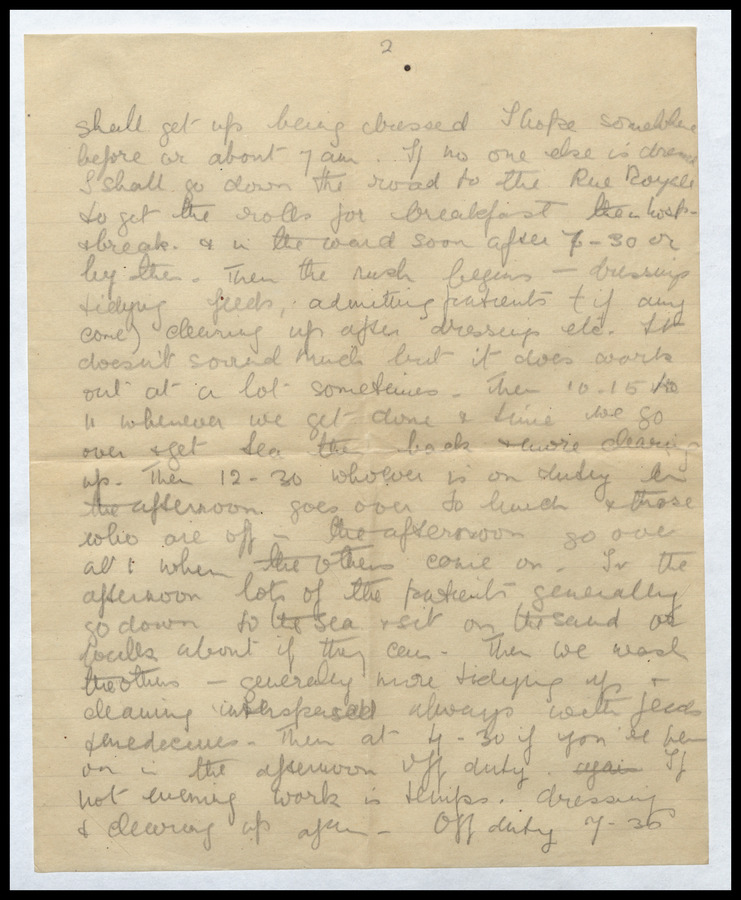 2
shall get up being dressed I hope somewhere
before or about 7 am. If no one else is dressed
I shall go down the road to the Rue Royale
to get the rolls for breakfast then
& break. & in the ward soon after 7-30 or
by then. Then the rush begins — dressings
tidying feeds, admitting patients (if any
come) clearing up after dressings etc. It
doesn't sound much but it does work
out at a lot sometimes. Then 10-15 to
11 whenever we get done & time we go
over & get tea then back & more clearing
up. Then 12-30 whoever is on duty in
the afternoon goes over to lunch & those
who are off – the afternoon go over
at 1 when the others come on. In the
afternoon lots of the patients generally
go down to the sea & sit on the sand or
about if they can. Then we wash
the others — generally more tidying up &
cleaning interspersed always with feeds
& medecines. Then at 4-30 if you've been
on in the afternoon off duty. again If
not evening work is temps. dressing
& clearing up again – Off duty 7-30